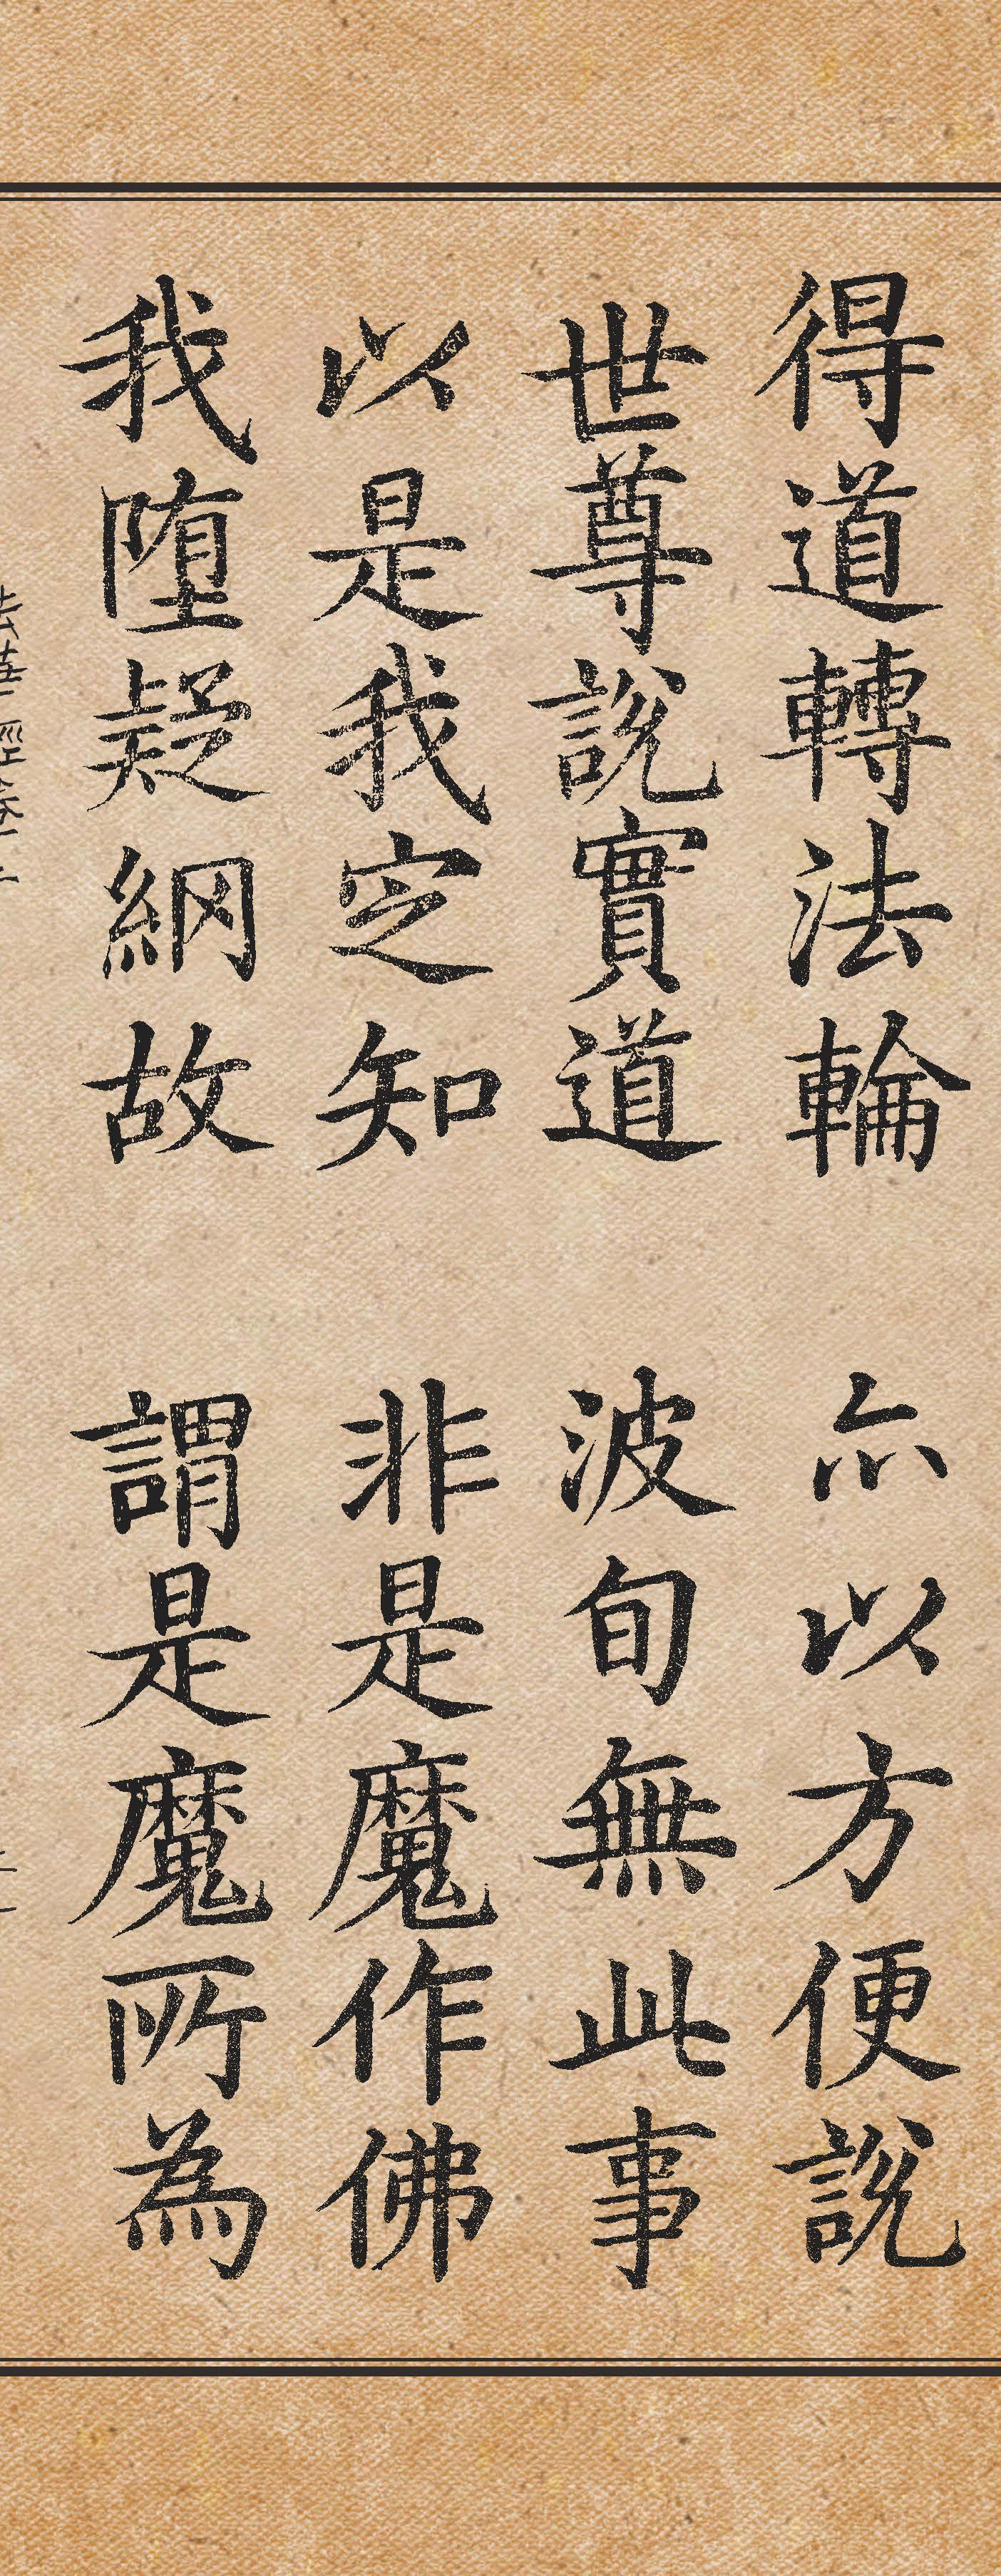 得道轉法輪　亦以方便說
世尊說實道　波旬無此事
以是我定知　非是魔作佛
我墮疑網故　謂是魔所為